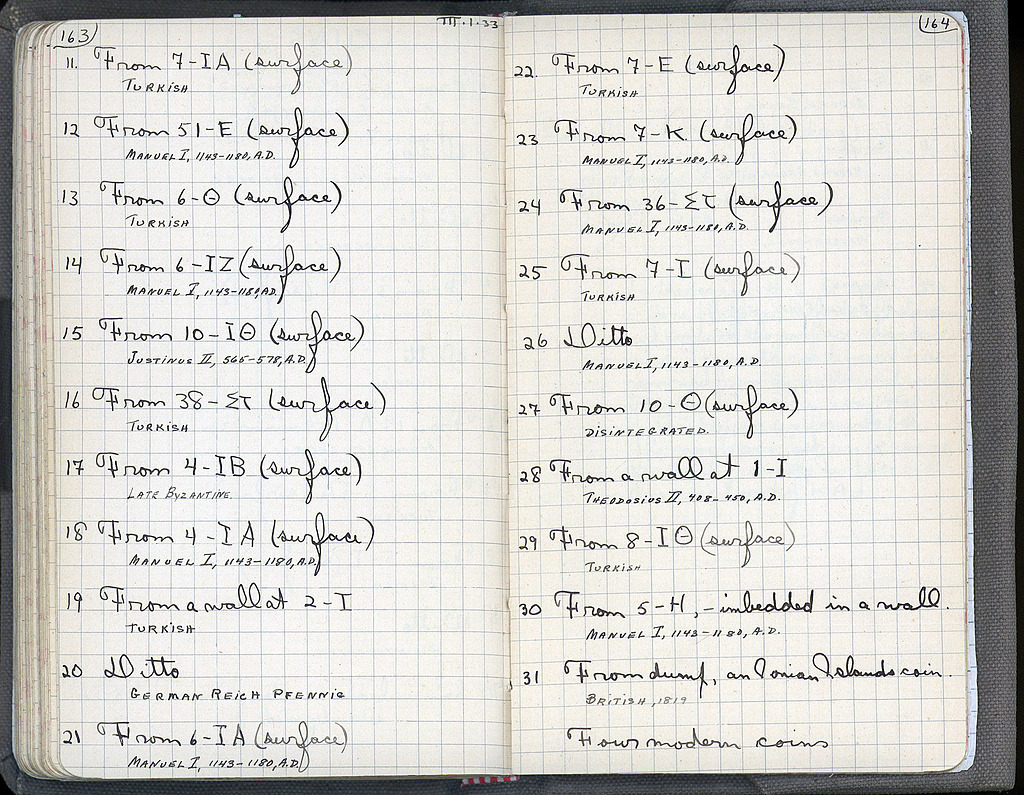 163
III.1.33
11. From 7-IA (surface)
TURKISH
12 From 51-E (surface)
MANUEL I, 1143-1180, A.D.
13 From 6-Θ (surface)
TURKISH
14 From 6-IZ (surface)
MANUEL I, 1143-1180, A.D.
15 From 10-IΘ (surface)
JUSTINUS II, 565-578, A.D.
16 From 38-ΣΤ (surface)
TURKISH
17 From 4-IB (surface)
LATE BYZANTINE.
18 From 4-IA (surface)
MANUEL I, 1143-1180, A.D.
19 From a wall at 2-I
TURKISH
20 Ditto
GERMAN REICH PFENNIG
21 From 6-IA (surface)
MANUEL I, 1143-1180, A.D.
164
22. From 7-E (surface)
TURKISH
23 From 7-K. (surface)
MANUEL I, 1143-1180, A.D.
24 From 36-ΣΤ (surface)
MANUEL I, 1143-1180, A.D.
25 From 7-I (surface)
TURKISH
26 Ditto
MANUEL I, 1143-1180, A.D.
27 From 10-Θ (surface)
DISINTEGRATED.
28 From a wall at 1-I
THEODOSIUS II, 408-450, A.D.
29 From 8-IΘ (surface)
TURKISH
30 From 5-H, - imbedded in a wall.
MANUEL I, 1143-1180, A.D.
31 From dump, an Ionian Islands coin.
BRITISH, 1819
Four modern coins